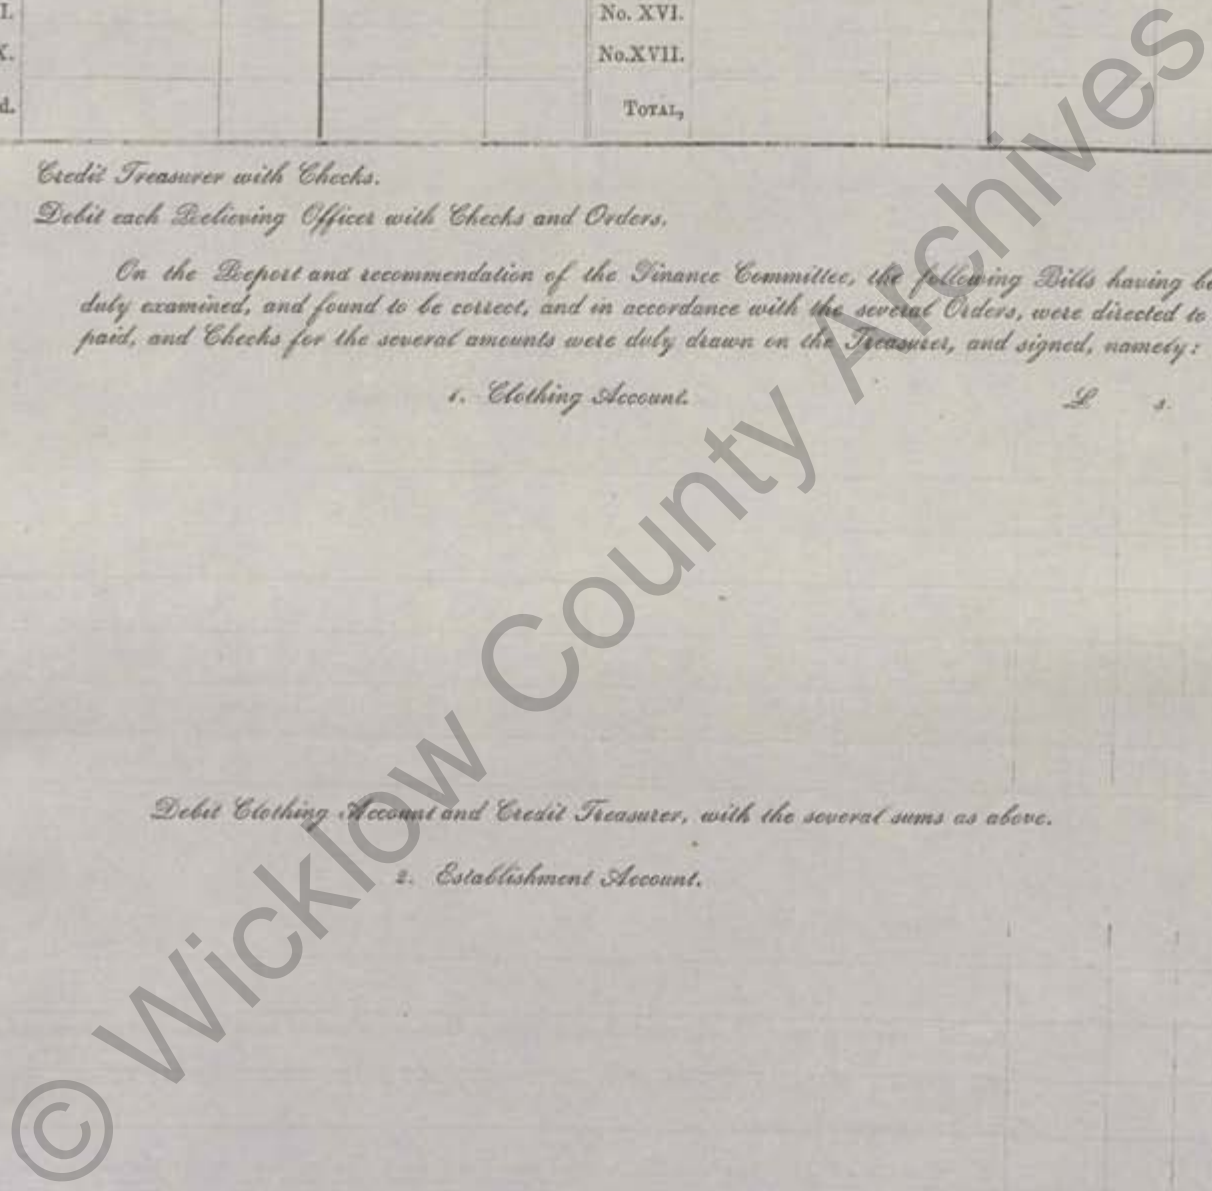 I. No. XVI.
X. No.XVII.
d. TOTAL,
Credit Treasurer with Checks.
Debit each Relieving Officer with Checks and Orders.
On the Report and recommendation of the Finance Committee, the following Bills having be
duly examined, and found to be correct, and in accordance with the several Orders, were directed to
paid, and Checks for the several amounts were duly drawn on the Treasurer, and signed, namely:
1. Clothing Account. £ s.
Debit Clothing Account and Credit Treasurer, with the several sums as above.
2. Establishment Account.
© Wicklow County Archives